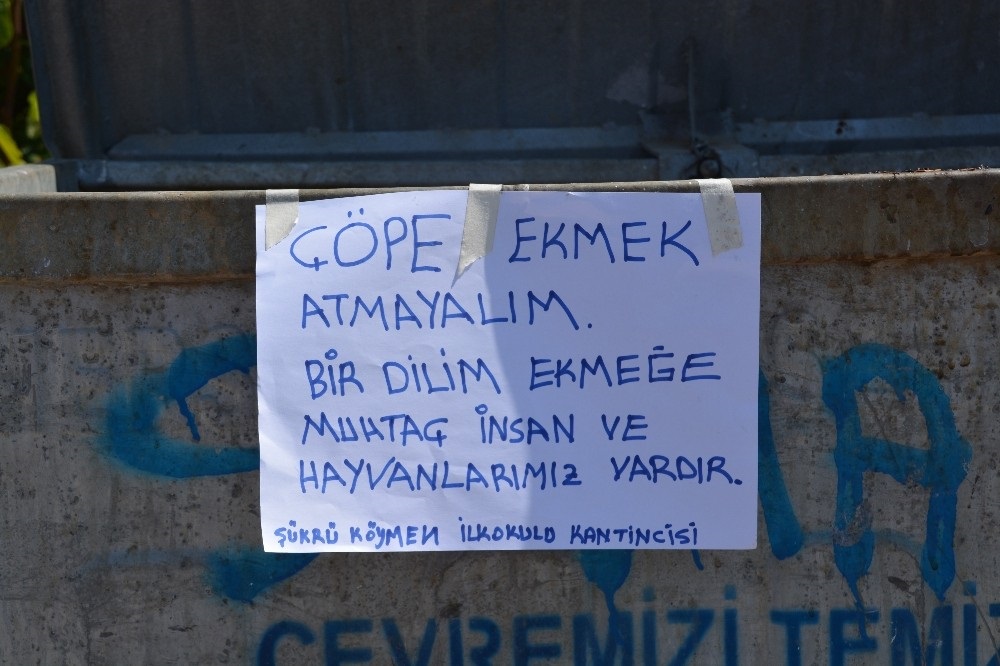 ÇÖPE EKMEK
ATMAYALIM.
BİR DİLİM EKMEĞE
MUHTAÇ İNSAN VE
HAYVANLARIMIZ VARDIR.
ŞÜKRÜ KÖYMEN İLKOKULU KANTİNCİSİ
ÇEVREMİZİ TEMİZ